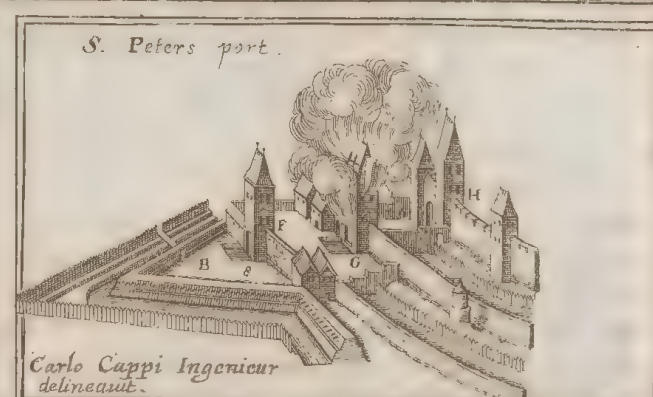 S. Peters port.
H
F
B 8 G
Carlo Cappi Ingenieur
delineauit.